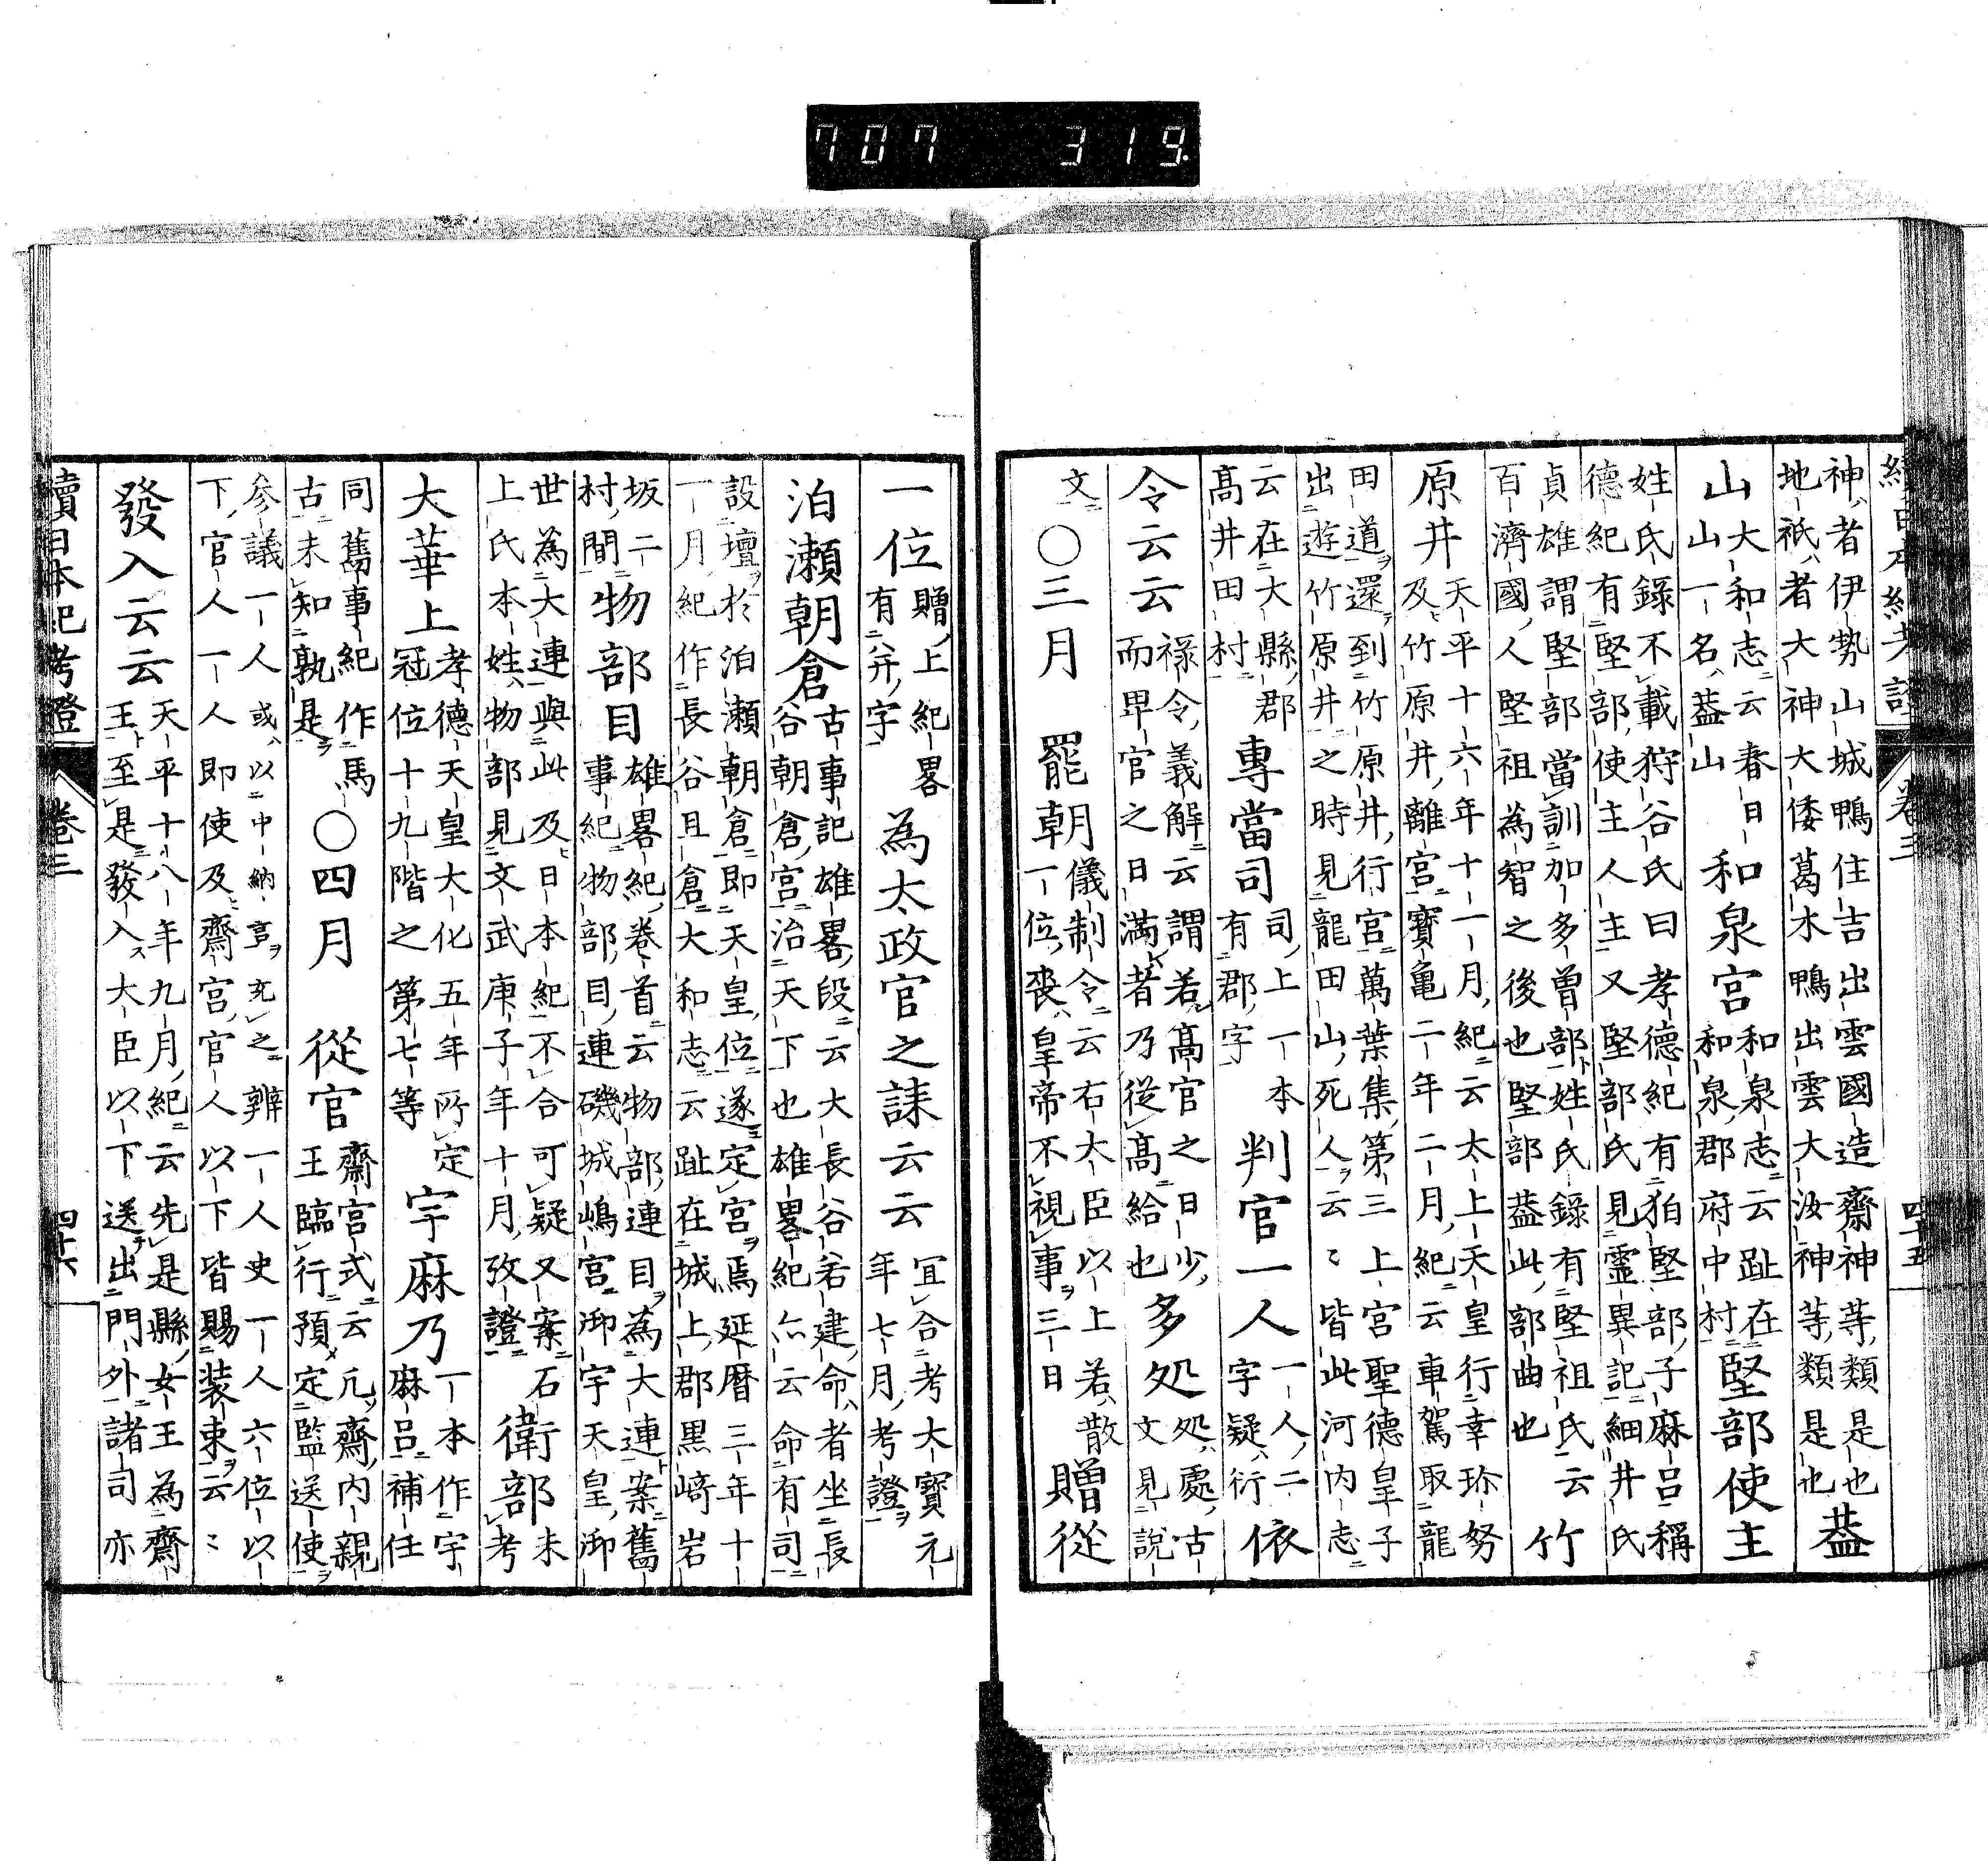 續日本紀考證 卷三 四十五
神者伊勢山城鴨住吉出雲國造齋神等類是也
地祇者大神大倭葛木鴨出雲大汝神等類是也
葢
山
大和志云春日
山一名葢山
和泉宮
和泉志云趾在
和泉郡府中村
堅部使主
姓氏錄不載狩谷氏曰孝德紀有狛堅部子麻呂稱
德紀有堅部使主人主又堅部氏見靈異記細井氏
貞雄謂堅部當訓加多曾部姓氏錄有堅祖氏云
百濟國人堅祖為智之後也堅部葢此部曲也
竹
原井
天平十六年十一月紀云太上天皇行幸珍努
及竹原井離宮寶亀二年二月紀云車駕取龍
田道還到竹原井行宮萬葉集第三上宮聖德皇子
出遊竹原井之時見龍田山死人云〻皆此河内志
云在大縣郡
髙井田村
專當司
司上一本
有郡字
判官一人
一人二
字疑衍
依
令云云
祿令義解云謂若髙官之日少
而畢官之日滿者乃從髙給也
多処
処處古
文見說
文
〇三月
罷朝
儀制令云右大臣以上若散
一位喪皇帝不視事三日
贈從
一位
贈上紀畧
有并字
為太政官之誄云云
宜合考大寶元
年七月考證
泊瀬朝倉
古事記雄畧段云大長谷若建命者坐長
谷朝倉宮治天下也雄畧紀亦云命有司
設壇於泊瀬朝倉即天皇位遂定宮焉延暦三年十
一月紀作長谷且倉大和志云趾在城上郡黒﨑岩
坂二
村間
物部目
雄畧紀卷首云物部連目為大連案舊
事紀物部目連磯城嶋宮御宇天皇御
世為大連與此及日本紀不合可疑又案石
上氏本姓物部見文武庚子年十月攷證
衛部
未
考
大華上
孝德天皇大化五年所定
冠位十九階之第七等
宇麻乃
一本作宇
麻呂補任
同舊事紀作馬
古未知孰是
〇四月
從官
齋宮式云凡齋内親
王臨行預定監送使
參議一人或以中納言充之辨一人史一人六位以
下官人一人即使及齋宮官人以下皆賜装束云〻
發入云云
天平十八年九月紀云先是縣女王為齋
王至是發入大臣以下送出門外諸司亦
續日本紀考證 卷三 四十六